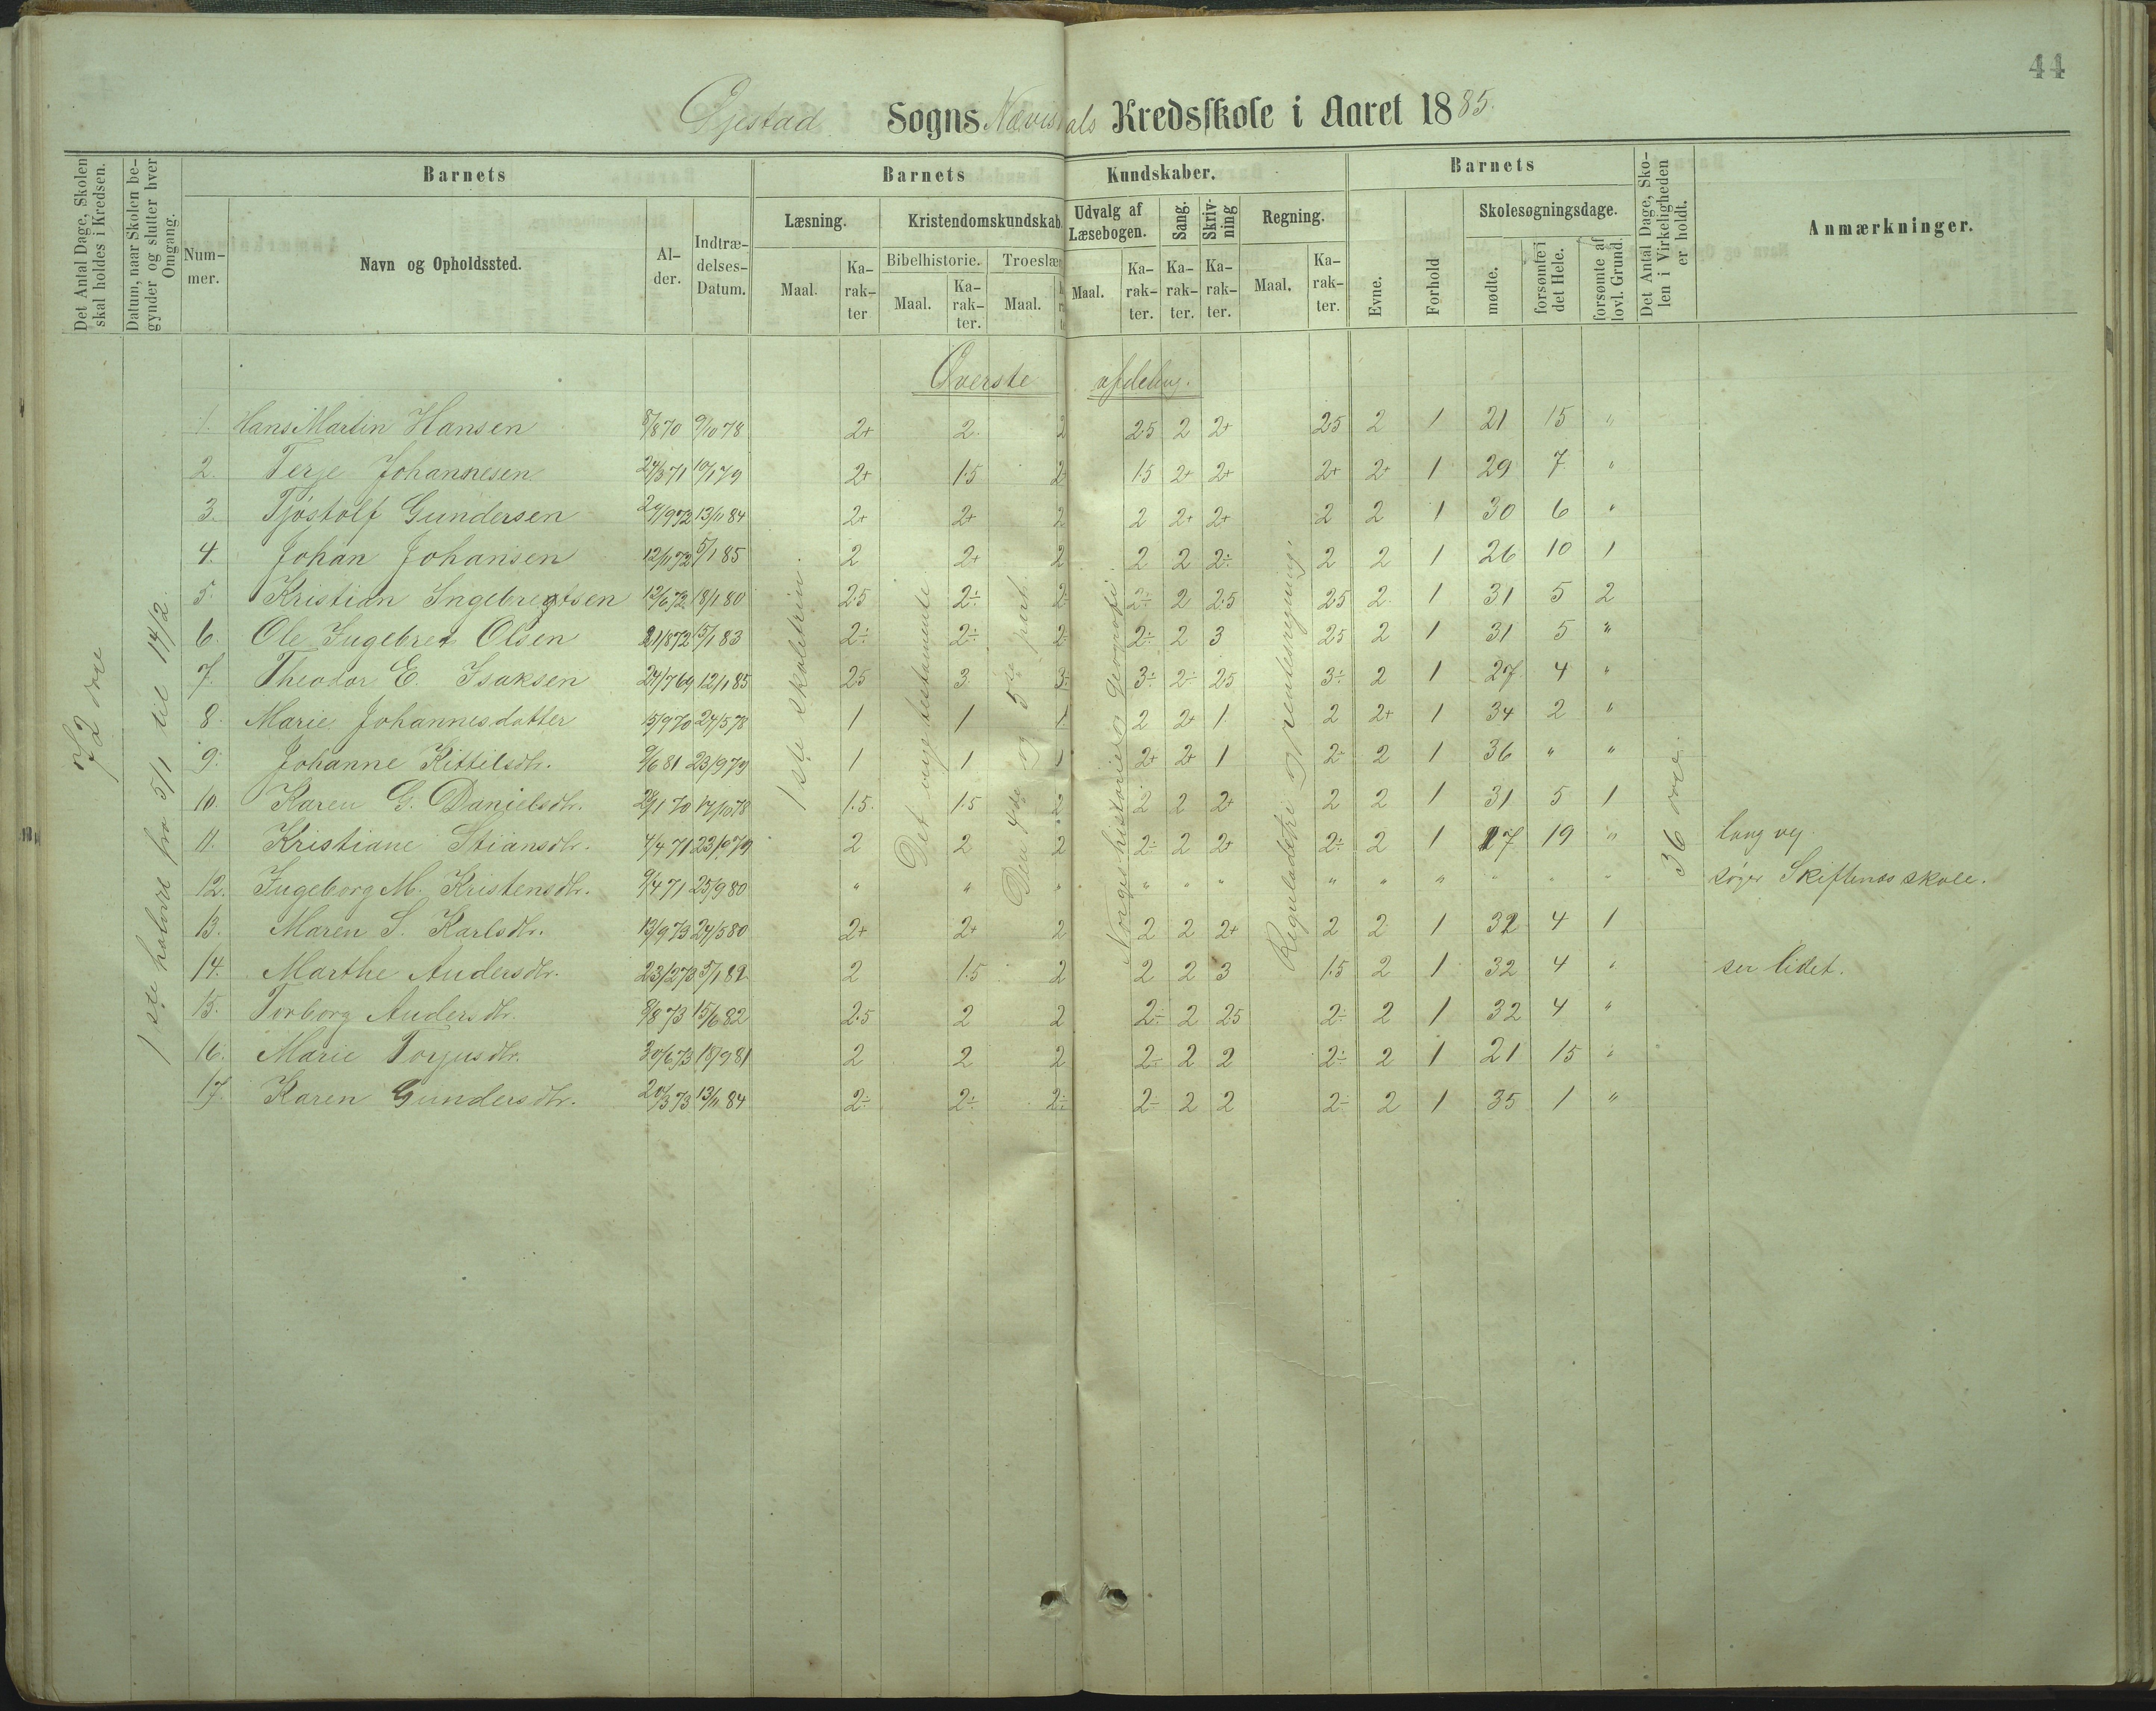 44
Øjestad Sogns Nævisdals Kredsskole i Aaret 1885.
Det Antal Dage, Skolen skal holdes i Kredsen.
Datum, naar Skolen begynder og slutter hver Omgang.
Barnets
Barnets Kundskaber.
Barnets
Det Antal Dage, Skolen i Virkeligheden er holdt.
Anmærkninger.
Nummer.
Navn og Opholdssted.
Alder.
Indtrædelses-Datum.
Læsning.
Kristendomskundskab.
Udvalg af Læsebogen.
Sang.
Skrivning
Regning.
Evne.
Forhold
Skolesøgningsdage.
Bibelhistorie.
Troeslær
Maal.
Karakter
Maal.
Karakter.
Maal.
Maal.
Karakter.
Karakter.
Karakter.
Maal.
Karakter.
mødte.
forsømte i det Hele.
forsømte af lovl. Grund.
Øverste afdeling.
1. Hans Martin Hansen 8/8 70 9/10 78 2+ 2. 2 2.5 2 2+ 2.5 2 1 21 15 "
2. Terje Johannesen 24/3 71 10/1 79 2+ 1.5 2 1.5 2+ 2+ 2+ 2+ 1 29 7 "
3. Tjøstolf Gundersen 29/9 72 13/11 84 2+ 2+ 2 2 2+ 2+ 2 2 1 30 6 "
4. Johan Johansen 12/11 72 5/1 85 2 2+ 2 2 2 2÷ 2 2 1 26 10 1
5. Kristian Ingebregtsen 12/6 72 18/1 80 2.5 2÷ 2÷ 2÷ 2 2.5 2.5 2 1 31 5 2
6. Ole Ingebret Olsen 21/8 72 15/1 83 2÷ 2÷ 2÷ 2÷ 2 3 2.5 2 1 31 5 "
7. Theodor E. Isaksen 24/7 69 12/1 85 2.5 3 3÷ 3÷ 2÷ 2.5 3÷ 2 1 27 4 "
8. Marie Johannesdatter 15/9 70 24/5 78 1 1 1 2 2+ 1 2 2+ 1 34 2 "
9. Johanne Kittilsdtr. 9/6 81 23/9 79 1 1 1 2+ 2+ 1 2 2 1 36 " "
10. Karen G. Danielsdtr. 28/1 70 17/10 78 1.5 1.5 2 2 2 2+ 2 2 1 31 5 1
11. Kristiane Stiansdtr. 4/4 71 23/10 79 2 2 2 2÷ 2 2+ 2÷ 2 1 17 19 " lang vej.
12. Ingeborg M. Kristensdtr. 9/4 71 25/9 80 " " " " " " " " " " " " søger Skiftenes skole.
13. Maren S. Karlsdtr. 13/9 73 24/5 80 2+ 2+ 2 2 2 2+ 2 2 1 32 4 1
14. Marthe Andersdtr. 23/12 73 5/1 82 2 1.5 2 2 2 3 1.5 2 1 32 4 " ser lidet.
15. Torborg Andersdtr. 8/8 73 15/6 82 2.5 2 2 2÷ 2 2.5 2÷ 2 1 32 4 "
16. Marie Torjusdtr. 30/6 73 18/9 81 2 2 2 2÷ 2 2 2÷ 2 1 21 15 "
17. Karen Gundersdtr. 20/3 73 13/11 84 2÷ 2÷ 2÷ 2÷ 2 2 2÷ 2 1 35 1 "
1ste halvdel fra 5/1 til 14/2.
1ste skoletrin.
Det nye testamente
Den 4de og 5te part.
Norges historie og geografi.
Reguladetri og rentesregning.